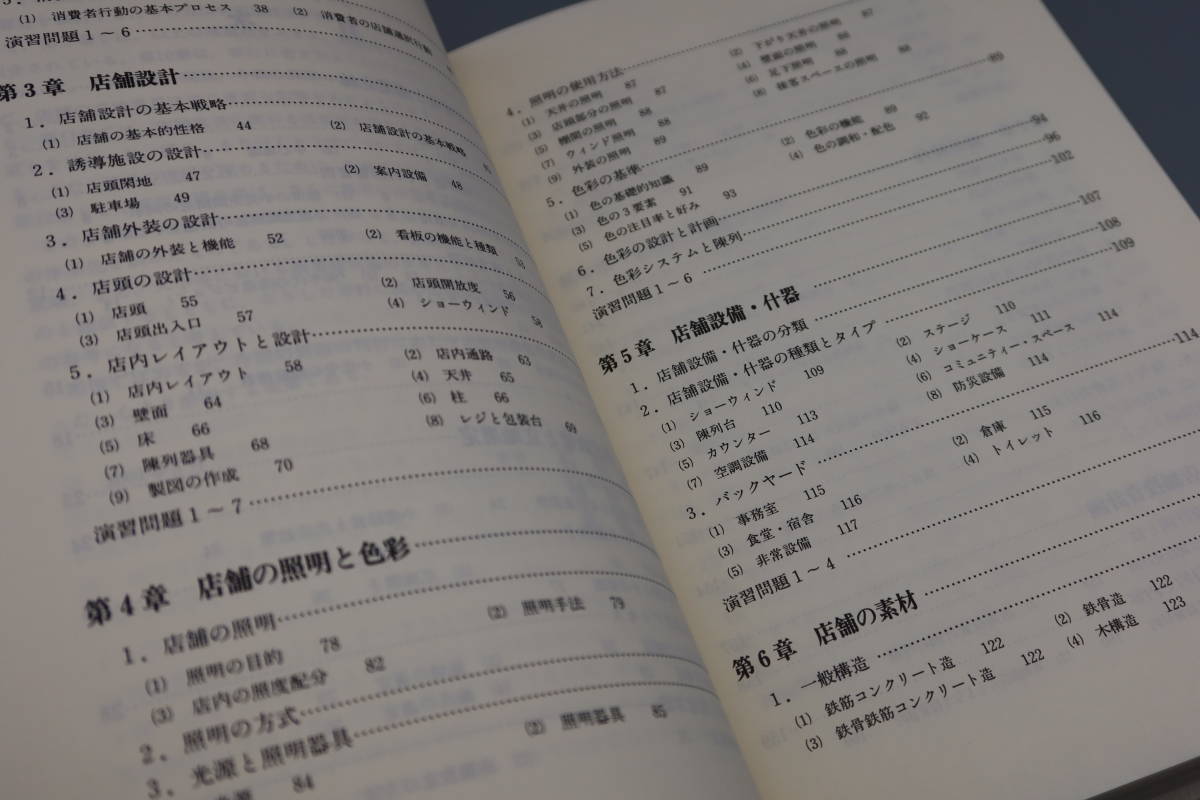 (1) 消費者行動の基本プロセス 38 (2) 消費者の店舗選択行動
演習問題1～6
第3章 店舗設計
1．店舗設計の基本戦略
(1) 店舗の基本的性格 44 (2) 店舗設計の基本戦略
2．誘導施設の設計
(1) 店頭閑地 47 (2) 案内設備 48
(3) 駐車場 49
3．店舗外装の設計
(1) 店舗の外装と機能 52 (2) 看板の機能と種類 53
4．店頭の設計
(1) 店頭 55 (2) 店頭開放度 56
(3) 店頭出入口 57 (4) ショーウィンド 58
5．店内レイアウトと設計
(1) 店内レイアウト 58 (2) 店内通路 63
(3) 壁面 64 (4) 天井 65
(5) 床 66 (6) 柱 66
(7) 陳列器具 68 (8) レジと包装台 69
(9) 製図の作成 70
演習問題1～7
第4章 店舗の照明と色彩
1．店舗の照明
(1) 照明の目的 78 (2) 照明手法 79
(3) 店内の照度配分 82
2．照明の方式
3．光源と照明器具
84 (2) 照明器具 85
4．照明の使用方法
(1) 天井の照明 87 (2) 下がり天井の照明 87
(3) 店頭部分の照明 87 (4) 壁面の照明 88
(5) 棚間の照明 88 (6) 足下照明 88
(7) ウィンド照明 88 (8) 接客スペースの照明 88
(9) 外装の照明 89
5．色彩の基準 89
(1) 色の基礎的知識 89 (2) 色彩の機能 89
(3) 色の3要素 91 (4) 色の調和・配色 92
(5) 色の注目率と好み 93
6．色彩の設計と計画 94
7．色彩システムと陳列 96
演習問題1～6 102
第5章 店舗設備・什器 107
1．店舗設備・什器の分類 108
2．店舗設備・什器の種類とタイプ 109
(1) ショーウィンド 109 (2) ステージ 110
(3) 陳列台 110 (4) ショーケース 111
(5) カウンター 113 (6) コミュニティー・スペース 114
(7) 空調設備 114 (8) 防災設備 114
3．バックヤード 114
(1) 事務室 115 (2) 倉庫 115
(3) 食堂・宿舎 116 (4) トイレット 116
(5) 非常設備 117
演習問題1～4
第6章 店舗の素材
1．一般構造
(1) 鉄筋コンクリート造 122 (2) 鉄骨造 122
(3) 鉄骨鉄筋コンクリート造 122 (4) 木構造 123